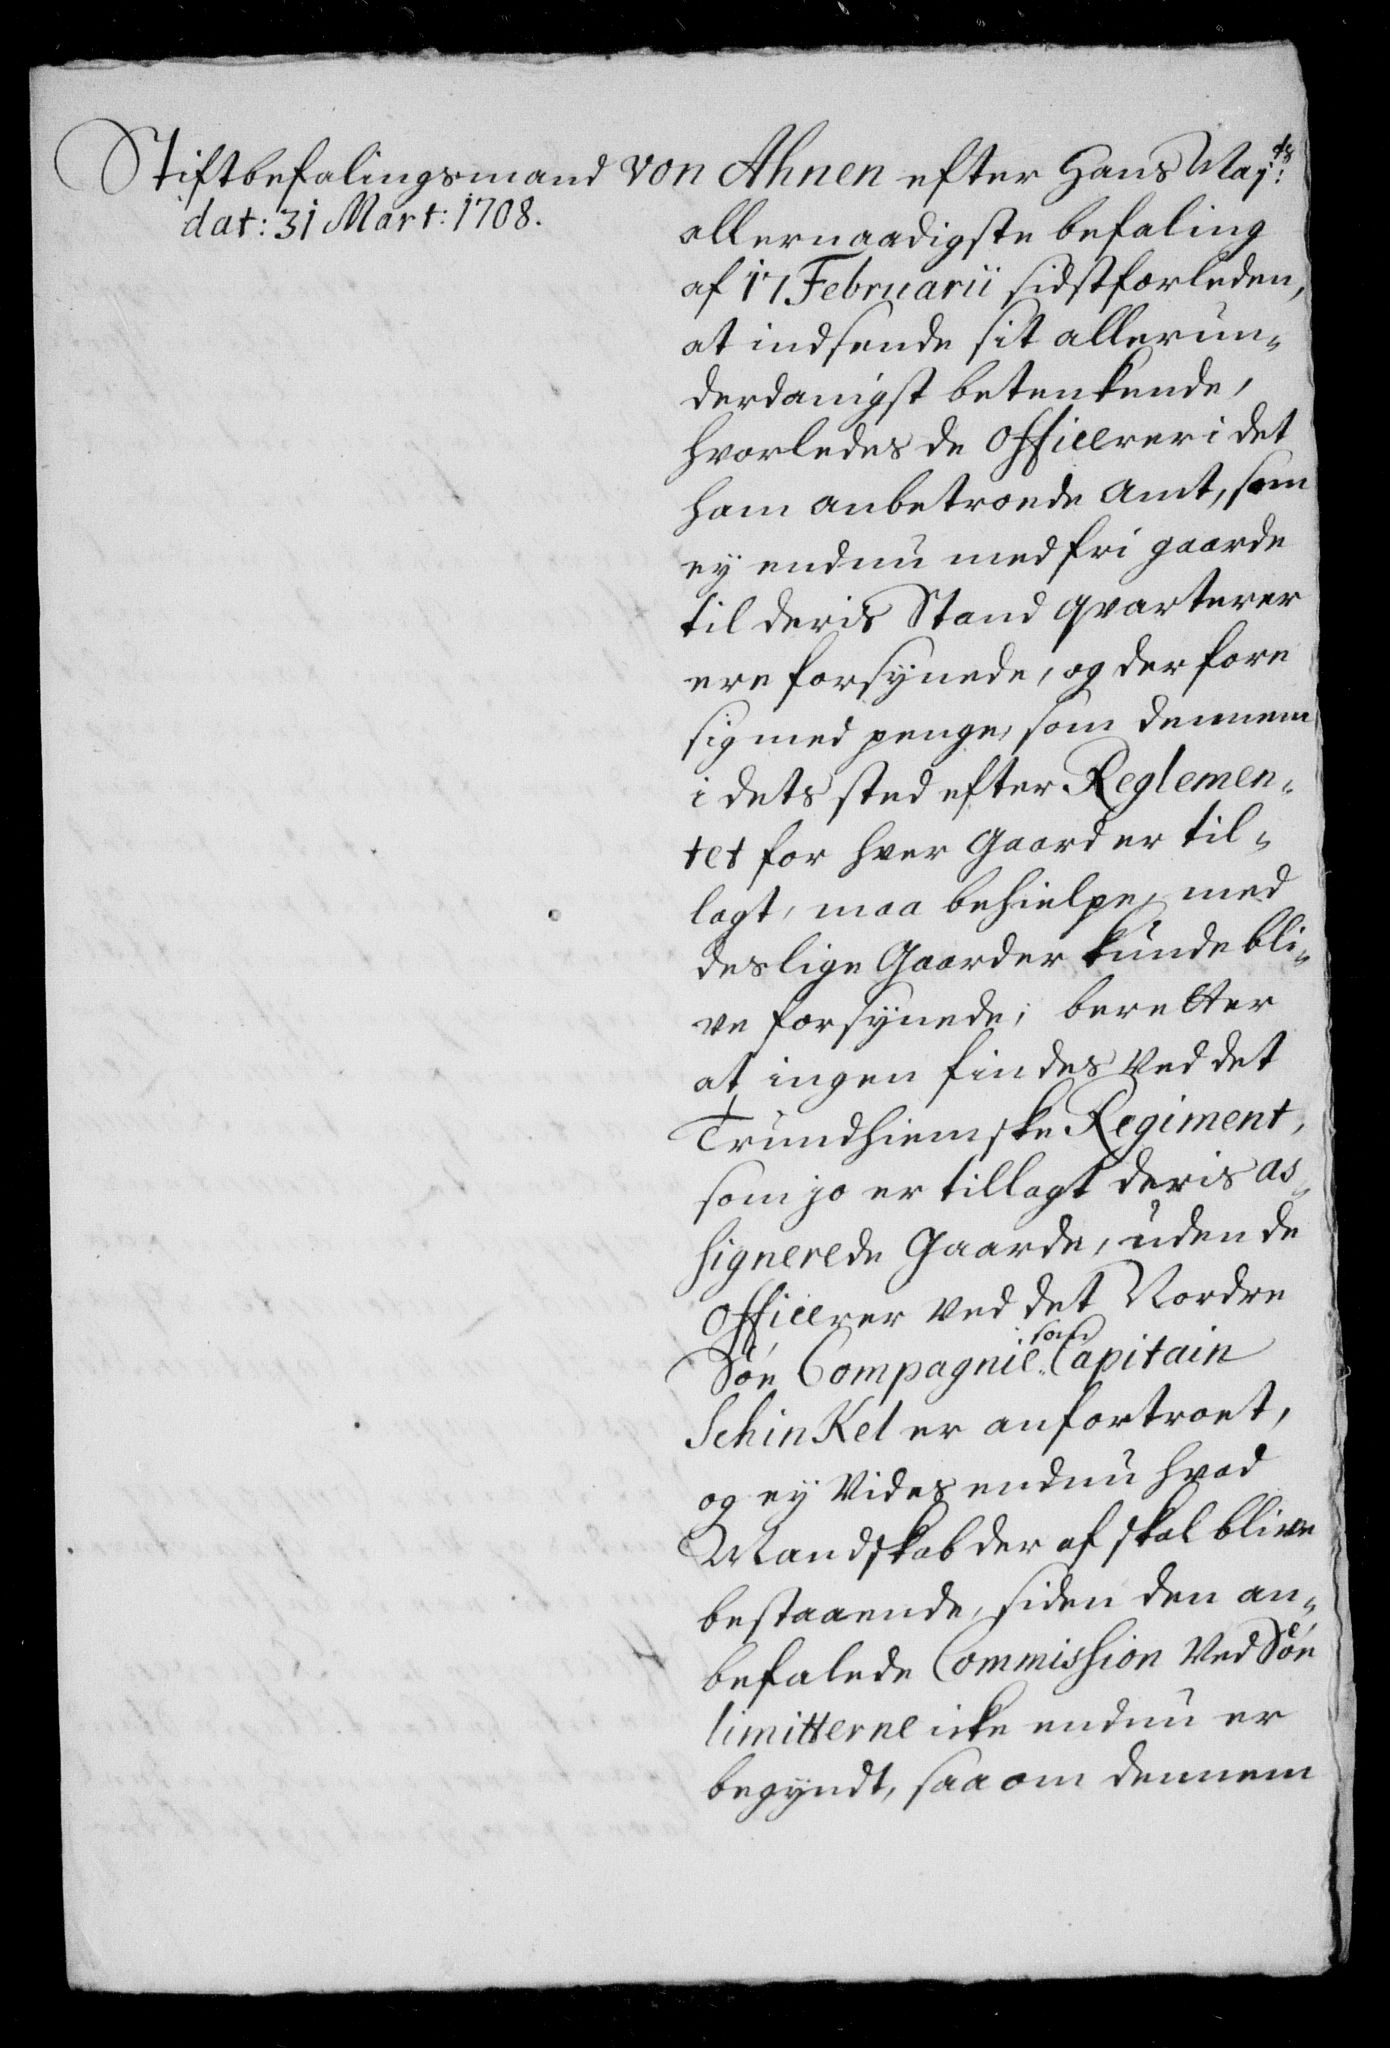 Stiftbefalingsmand von Ahnen efter Hans Maj:ts
dat: 31 Mart: 1708.
allernaadigste befaling
af 17 Februarii sidstforleden,
at indsende sit allerun-
derdanigst betenkende,
hvorledes de Officerer i det
ham anbetroede Amt, som
ey endnu med fri gaarde
til deris Stand qvarterer
ere forsynede, og derfore
sig med penge, som dennem
i dets sted efter Reglemen-
tet for hver Gaard er til-
lagt, maa behielpe, med
deslige Gaarder kunde bli-
ve forsynede; beretter
at ingen findes ved det
Trundhiemske Regiment,
som jo er tillagt deris as-
signerede Gaarde, uden de
Officerer ved det Nordre
Søe Compagnie som Capitain
Schinkel er anfortroet,
og ey vides endnu hvad
Mandskab der af skal blive
bestaaende, siden den an-
befalede Commission ved Søe
limitterne icke endnu er
begyndt, saa om dennem